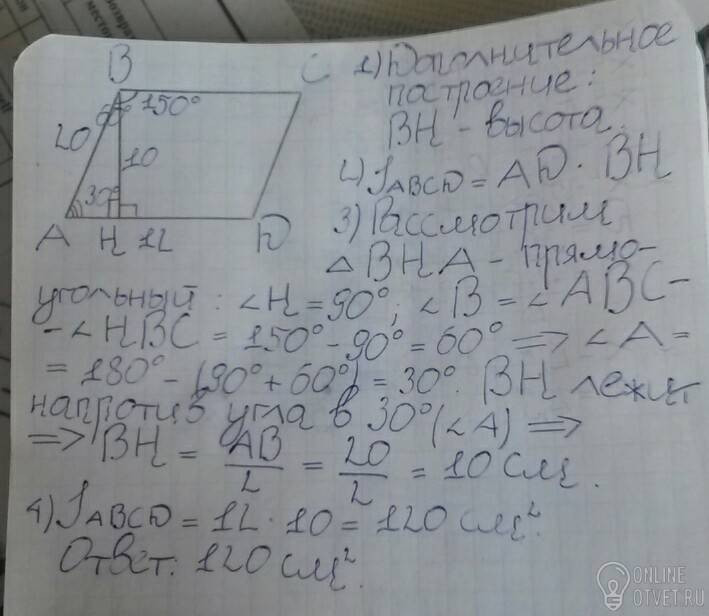 возврат
B
C
150°
20
10
30°
A
H
12
D
1) Дополнительное
построение:
BH - высота.
2) SABCD = AD · BH
3) Рассмотрим
△BHA - прямо-
угольный: ∠H = 90°; ∠B = ∠ABC-
-∠HBC = 150° - 90° = 60° => ∠A =
= 180° - (90° + 60°) = 30°. BH лежит
напротив угла в 30° (∠A) =>
=> BH = AB/2 = 20/2 = 10 см.
4) SABCD = 12 · 10 = 120 см².
Ответ: 120 см².
ONLINE
OTVET.RU